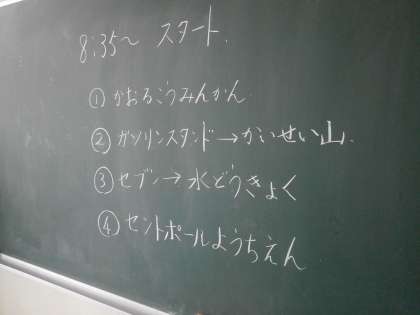 8:35～ スタート.
① かおるこうみんかん
② ガソリンスタンド→かいせい山.
③ セブン→水どうきょく
④ セントポールようちえん